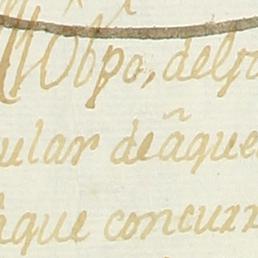 Obpo, del
ular deãque
aque concurr